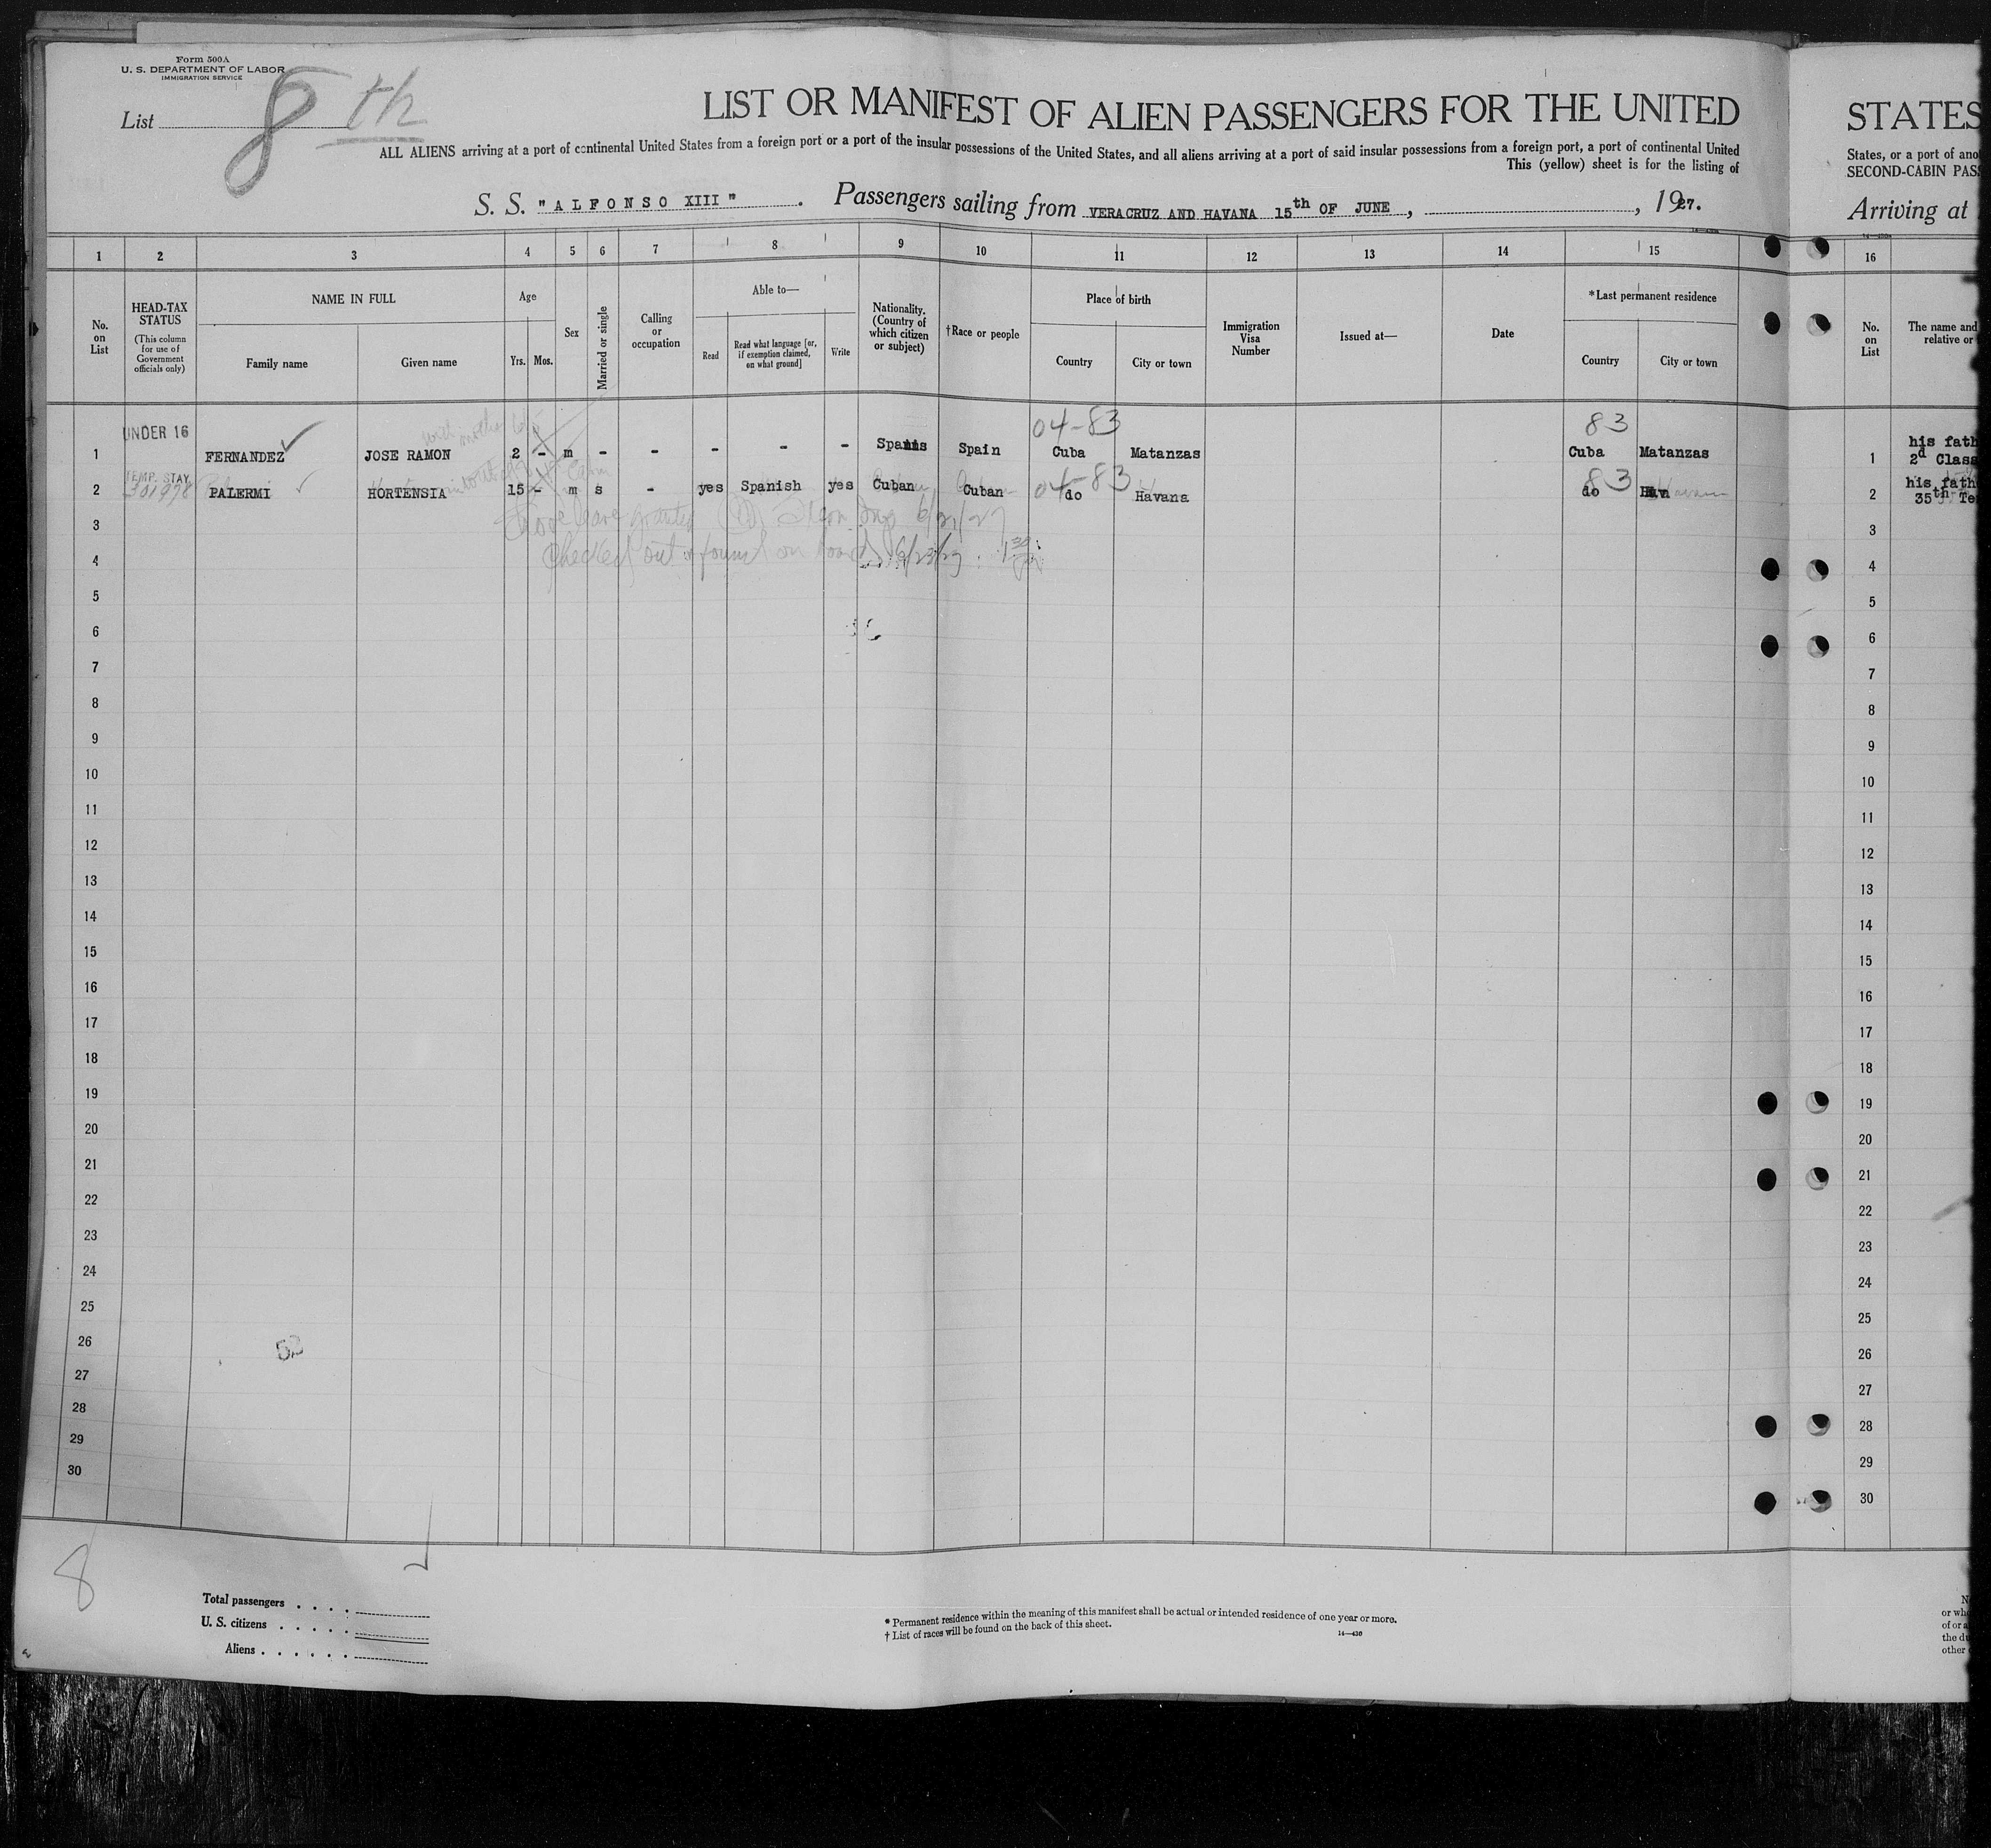 Form 500A
U. S. DEPARTMENT OF LABOR
IMMIGRATION SERVICE
List 8th
LIST OR MANIFEST OF ALIEN PASSENGERS FOR THE UNITED
ALL ALIENS arriving at a port of continental United States from a foreign port or a port of the insular possessions of the United States, and all aliens arriving at a port of said insular possessions from a foreign port, a port of continental United
This (yellow) sheet is for the listing of
S. S. "ALFONSO XIII". Passengers sailing from VERACRUZ AND HAVANA 15th OF JUNE, , 1927.
STATES
States, or a port of
SECOND-CABIN
Arriving at
1 2 3 4 5 6 7 8 9 10 11 12 13 14 15 16
No. on List
HEAD-TAX STATUS
(This column for use of Government officials only)
NAME IN FULL
Family name Given name
Age
Yrs. Mos.
Sex
Married or single
Calling or occupation
Able to—
Read
Read what language [or, if exemption claimed, on what ground]
Write
Nationality. (Country of which citizen or subject)
†Race or people
Place of birth
Country City or town
Immigration Visa Number
Issued at—
Date
*Last permanent residence
Country City or town
No. on List
The name and
relative or
UNDER 16 04-83 83
1 FERNANDEZ JOSE RAMON 2 - m - - - - - Spain Cuba Matanzas Cuba Matanzas 1 his
2d Class
TEMP. STAY 04-83 83
2 PALERMI HORTENSIA 15 - m s - yes Spanish yes Cuban Cuban do Havana do Havana 2 his
35th
leave granted 6/21/27
Checked out & found on board 6/23/27
3 3
4 4
5 5
6 6
7 7
8 8
9 9
10 10
11 11
12 12
13 13
14 14
15 15
16 16
17 17
18 18
19 19
20 20
21 21
22 22
23 23
24 24
25 25
26 26
27 27
28 28
29 29
30 30
8
Total passengers . . . .
U. S. citizens . . . . .
Aliens . . . . . .
* Permanent residence within the meaning of this manifest shall be actual or intended residence of one year or more.
† List of races will be found on the back of this sheet.
14—430
or
of or
the
other